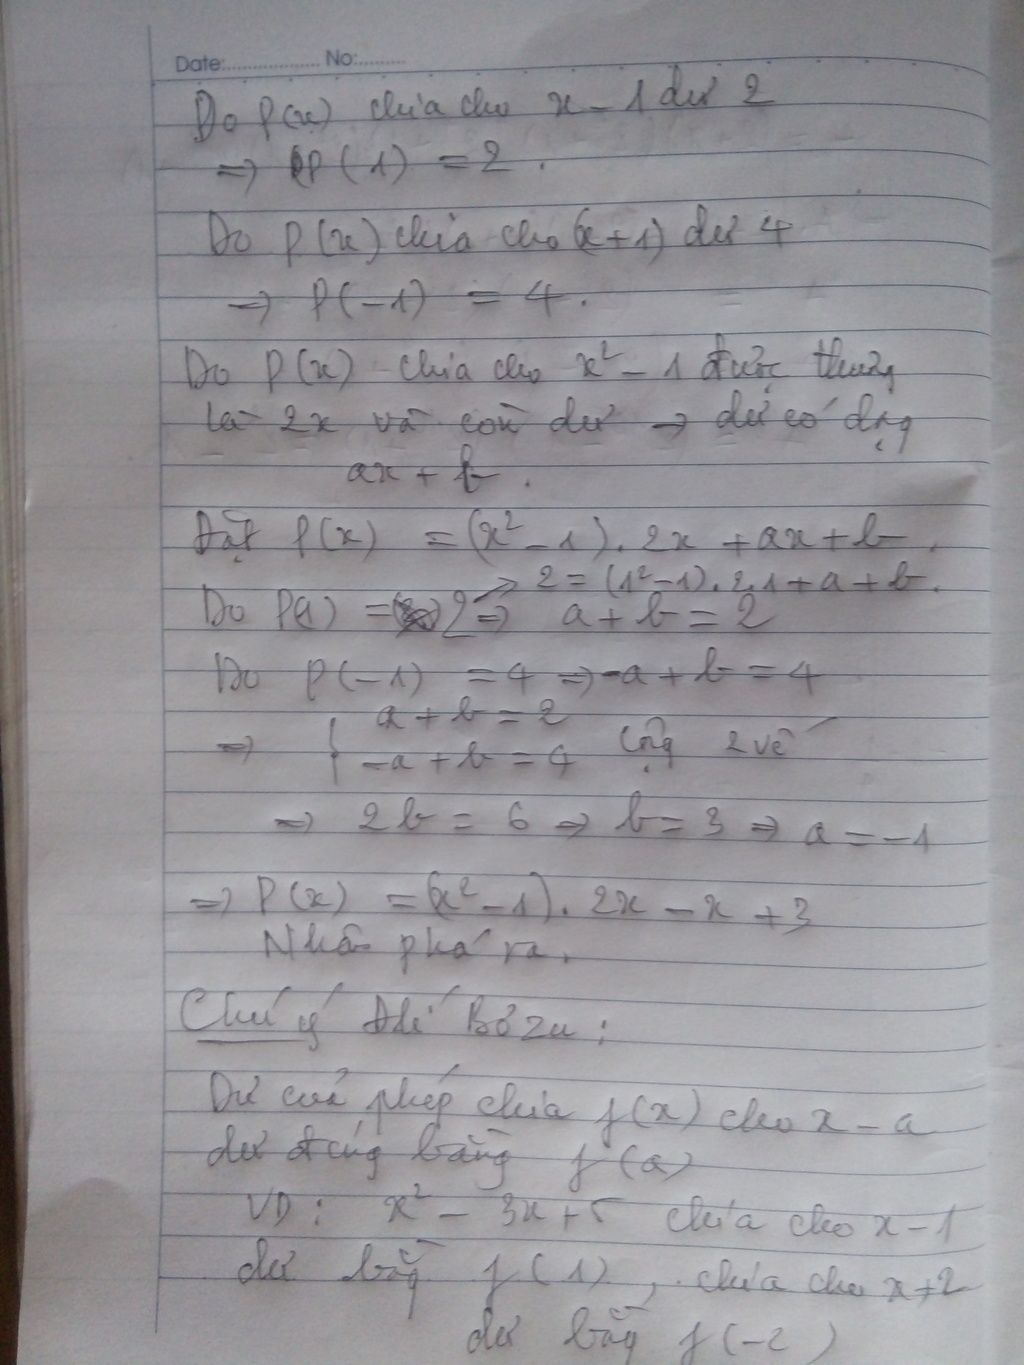 Date:.................. No:.........
Do P(x) chia cho x - 1 dư 2
=> P(1) = 2.
Do P(x) chia cho (x+1) dư 4
=> P(-1) = 4.
Do P(x) chia cho x² - 1 được thương
là 2x và còn dư → dư có dạng
ax + b.
Đặt P(x) = (x² - 1). 2x + ax + b.
→ 2 = (1² - 1). 2.1 + a + b.
Do P(1) = 2 => a + b = 2
Do P(-1) = 4 => -a + b = 4
a + b = 2
=> { -a + b = 4 Cộng 2 vế
=> 2b = 6 => b = 3 => a = -1
=> P(x) = (x² - 1). 2x - x + 3
Nhân phá ra.
Chú ý Đlí Bơzu:
Dư của phép chia f(x) cho x - a
dư đúng bằng f(a)
VD: x² - 3x + 5 chia cho x - 1
dư bằng f(1), chia cho x + 2
dư bằng f(-2)